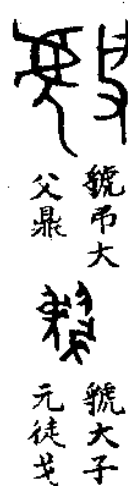 虢弔大
父鼎
虢大子
元徒戈